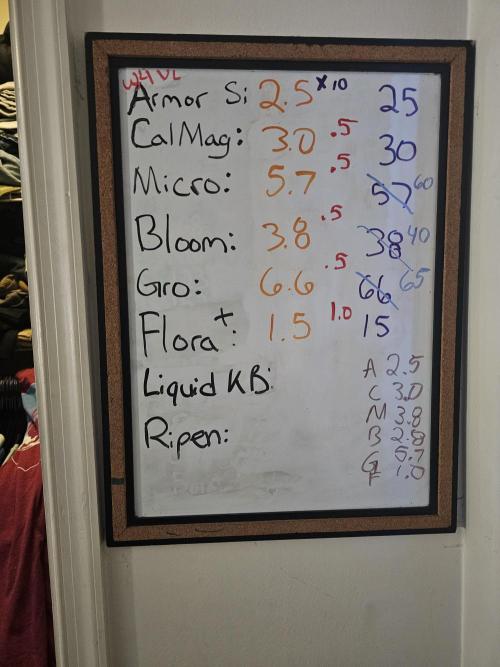 W4 VL
Armor Si 2.5 x10 25
CalMag: 3.0 .5 30
Micro: 5.7 .5 57 60
Bloom: 3.8 .5 38 40
Gro: 6.6 .5 66 65
Flora+: 1.5 1.0 15
Liquid KB:
Ripen:
A 2.5
C 3.0
M 3.8
B 2.8
G 5.7
F 1.0